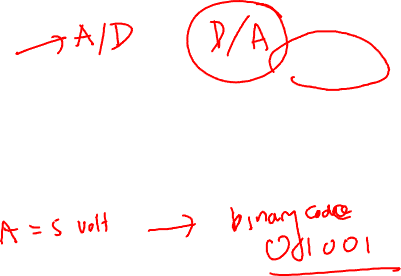 → A/D D/A
A = 5 volt → binary code
001001